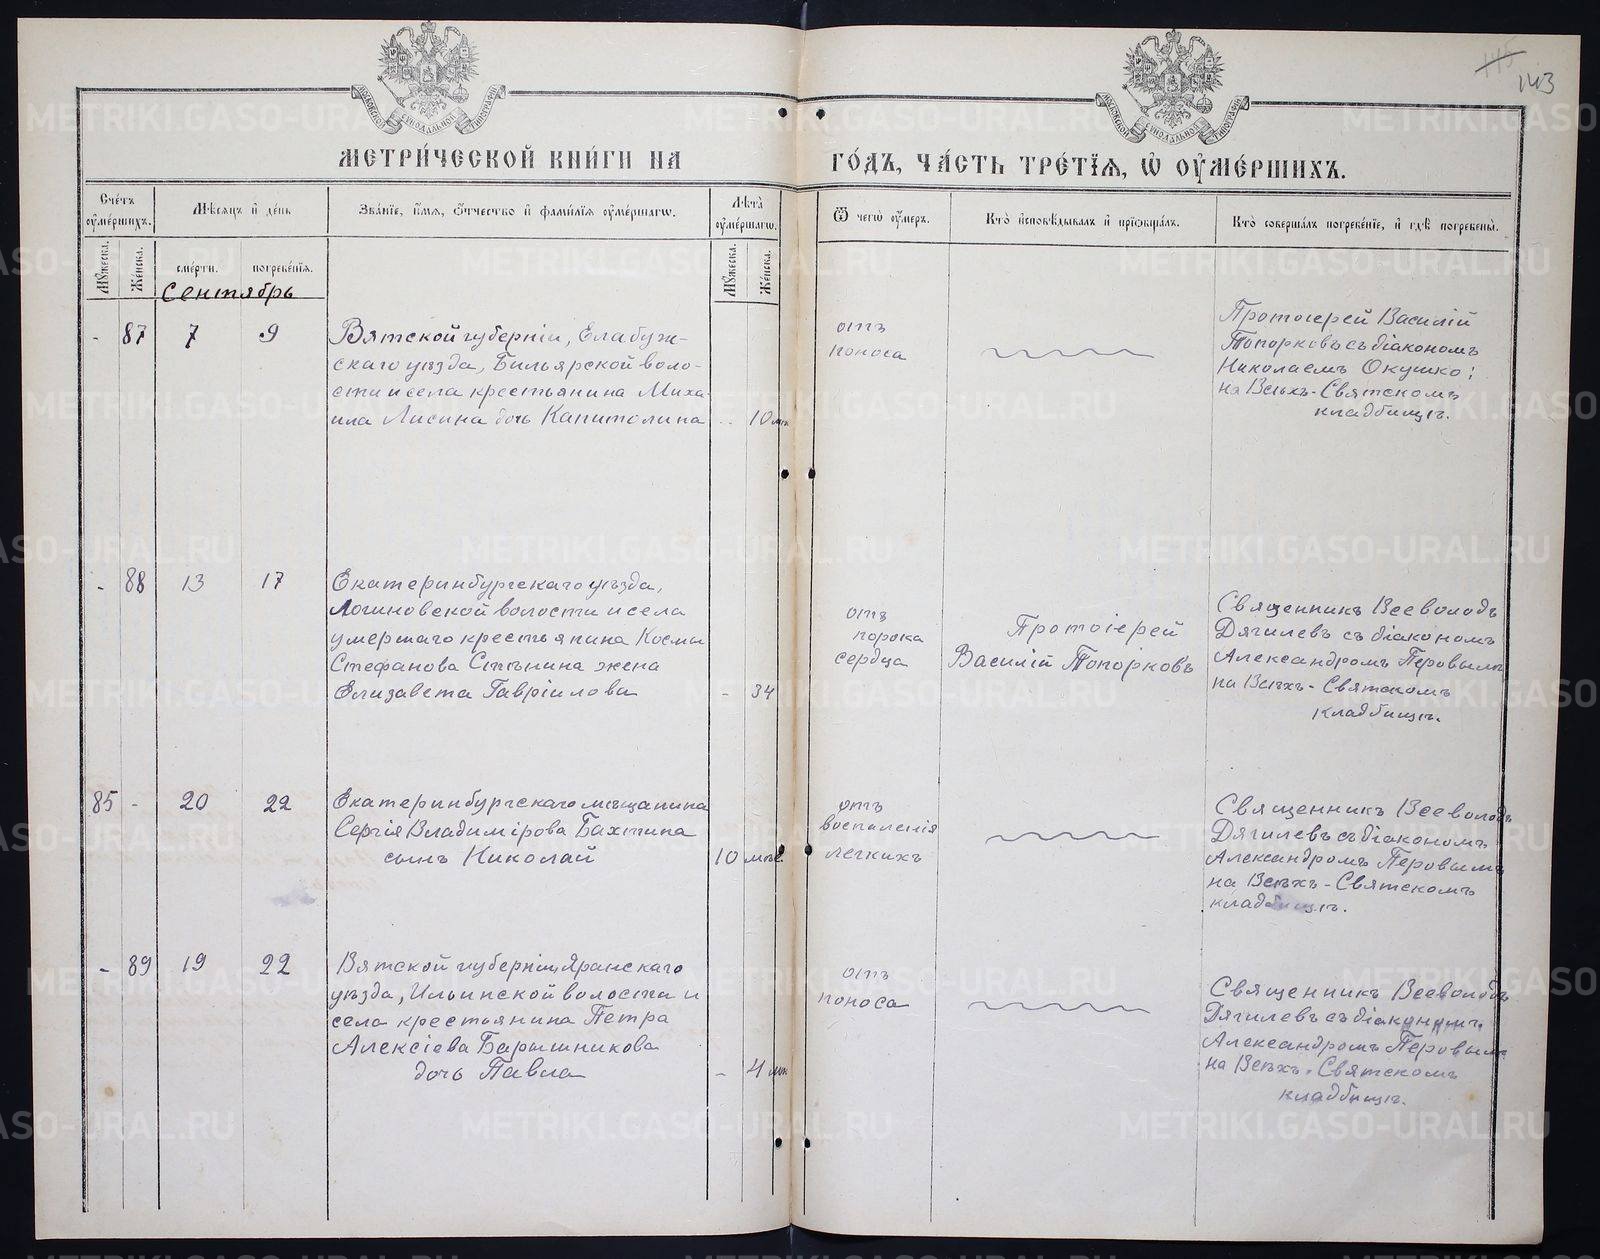 115
143
МОСКОВСКОЙ СѴНОДАЛЬНОЙ ТИПОГРАФІИ
МОСКОВСКОЙ СѴНОДАЛЬНОЙ ТИПОГРАФІИ
МЕТРИ́ЧЕСКОЙ КНИ́ГИ НА
ГО́ДЪ, ЧА́СТЬ ТРЕ́ТЇѦ, Ѡ҆ ОУ҆МЕ́РШИХЪ.
Сче́тъ оу҆ме́ршихъ.
Мѣ́сяцъ и҆ де́нь
Зва́нїе, и҆́мѧ, ѻ҆́тчество и҆ фами́лїѧ оу҆ме́ршагѡ.
Лѣ́та оу҆ме́ршагѡ.
Ѿ чегѡ̀ оу҆́меръ.
Кто̀ и҆сповѣ́дывалъ и҆ прїѻбща́лъ.
Кто̀ соверша́лъ погребе́нїе, и҆ гдѣ̀ погребены̀.
Мꙋ́жеска.
Же́нска.
сме́рти.
погребе́нїѧ.
Мꙋ́жеска.
Же́нска.
Сентябрь
- 87 7 9
Вятской губерніи, Елабуж-
скаго уѣзда, Бильярской воло-
сти и села крестьянина Миха-
ила Лисина дочь Капитолина
- 10 мѣс
отъ
поноса
Протоіерей Василій
Топорковъ съ діакономъ
Николаемъ Окушко;
на Всѣхъ-Святскомъ
кладбищѣ.
- 88 13 17
Екатеринбургскаго уѣзда,
Логиновской волости и села
умершаго крестьянина Космы
Стефанова Стѣнина жена
Елизавета Гавріилова
- 34
отъ
порока
сердца
Протоіерей
Василій Топорковъ
Священникъ Всеволодъ
Дягилевъ съ діакономъ
Александромъ Перовымъ
на Всѣхъ-Святскомъ
кладбищѣ.
85 - 20 22
Екатеринбургскаго мѣщанина
Сергія Владимірова Бахтина
сынъ Николай
10 мѣс
отъ
воспаленія
легкихъ
Священникъ Всеволодъ
Дягилевъ съ діакономъ
Александромъ Перовымъ
на Всѣхъ-Святскомъ
кладбищѣ.
- 89 19 22
Вятской губерніи, Яранскаго
уѣзда, Ильинской волости и
села крестьянина Петра
Алексіева Барышникова
дочь Павла
- 4 мѣс
отъ
поноса
Священникъ Всеволодъ
Дягилевъ съ діакономъ
Александромъ Перовымъ
на Всѣхъ-Святскомъ
кладбищѣ.
METRIKI.GASO-URAL.RU